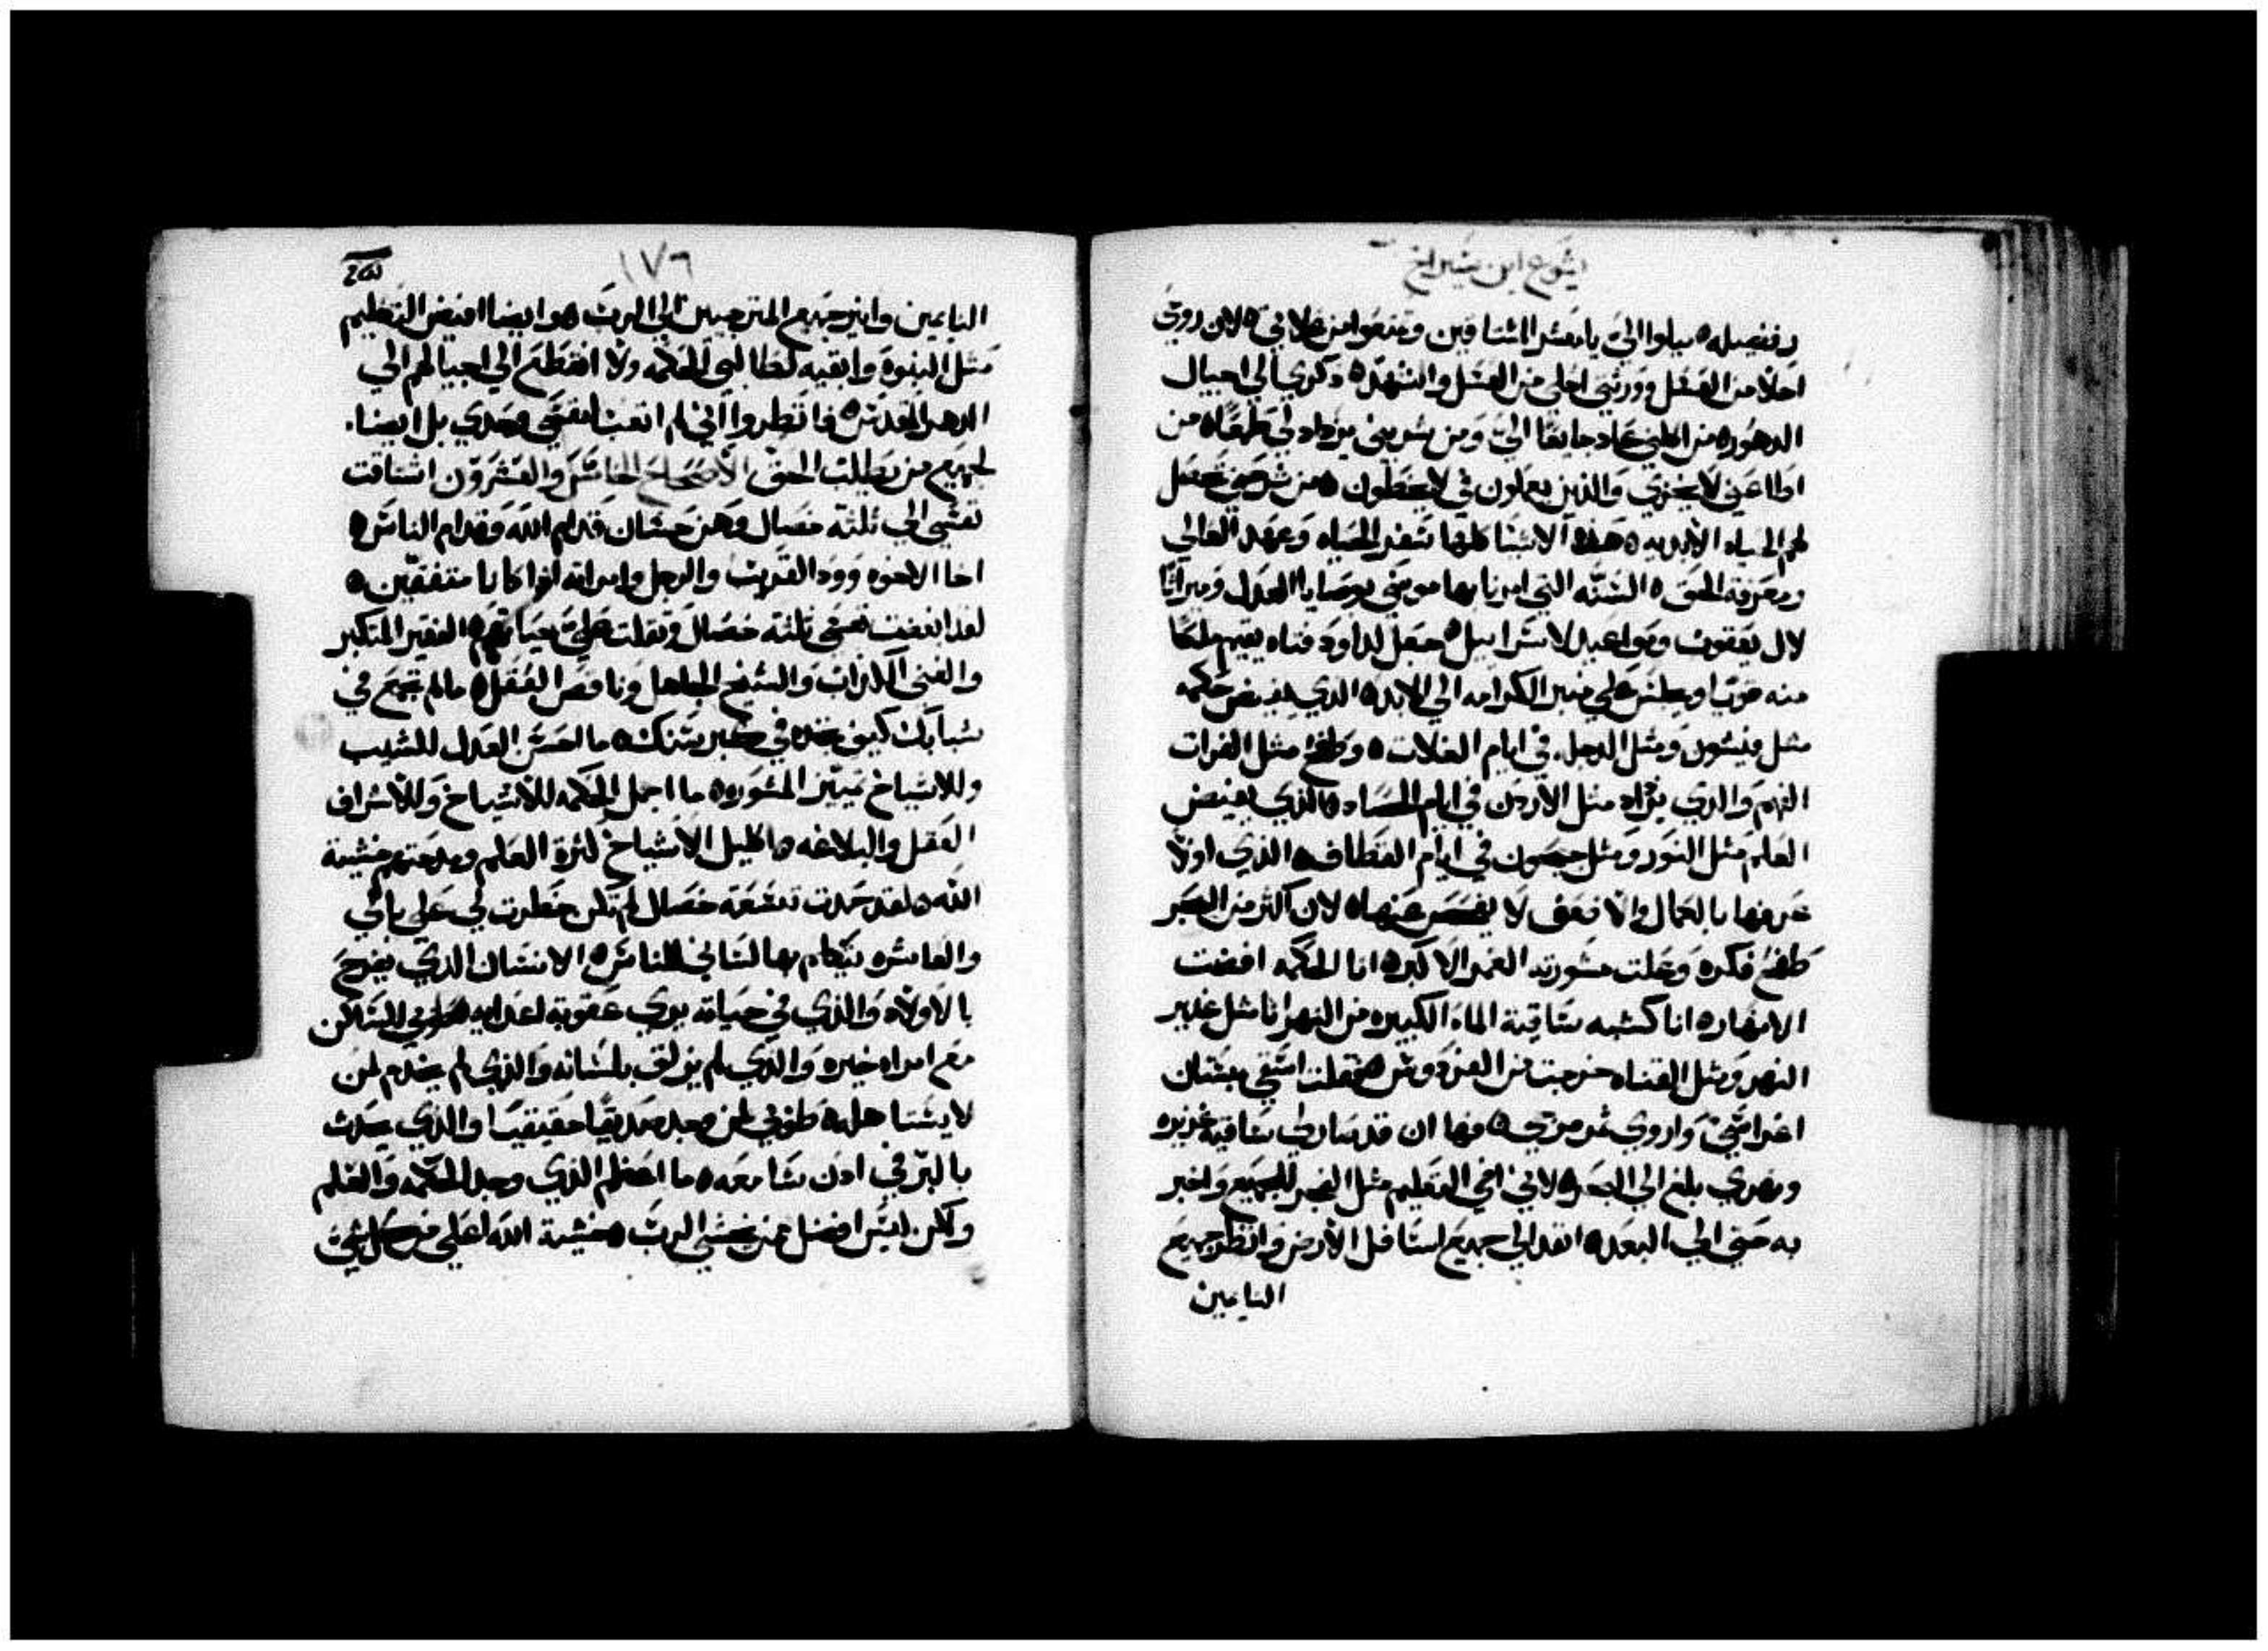 يشوع ابن شيراخ
رفنصيله ه ميلوا اليّ يا معشر المشتاقين وتنعموا من غلاتي ه لان روحي
احلا من العسَل وورثتي احلي من العسَل والشهد ه ذكري الي اجيال
الدهُور ه من اكلني عاد جايعًا اليّ ومن شربني يزداد لي ظمًا ه من
اطاعني لا يخزي والذين يعملون فيّ لا يخطون ه من شرحني تحصَل
لهم الحياه الأبديه ه هذه الاشيَا كلها سَفر الحيَاه وعهد العَالي
ومعَرفة الحَق ه السُنّه التي امرنا بها موسَي بوصَايا العدل وميراثًا
لال يَعقوب ومواعيد لاسَراييل ه جعل لداوَد فتاه يقيم ملكًا
منه قويًا ويجلسَ علي منبر الكرامه الي الابد ه الذي يفيض حكمه
مثل فيشون ومثل الدجله في ايام الغلات ه وطفح مثل الفرات
الفهم والذي يزاد مثل الأردن في ايام الحصَاد ه الذي يفيض
العلم مثل النوَر ومثل جيحون في ايام القطاف ه الذي اولاً
عَرفها بالكمال والاضعَف لا يفحصَ عنها ه لان اكثر من البحَر
طفح فكره وعَلت مشورته الغمر الاكبر ه انا الحكمه افضت
الانهار ه انا كشبه سَاقية الماء الكبيره من النهر انا مثل غدير
النهر ومثل القناه خرجت من الفردوسَ ه فقلت اسَقي بسَتان
اغراسَي واروي ثمر مرجي ه فها ان قد صَار لي سَاقية غزيره
ونهري بلغ الي البحَر ه لاني اضي التعليم مثل الفجر للجميع واخبر
به حتي الي البعد ه انفد الي جميع اسَافل الأرض وانظر جميع
النايمين
١٧٦
النايمين وانير جميع المترجيين الي الربَ هوا ايضا افيض التعليم
مثل النبوه وابقيه لطالبي الحكمه ولا انقطع الي اجيالهم الي
الدهر المقدسَ ه فانظروا اني لم اتعب لنفسَي وحَدي بل ايضا
لجميع من يطلب الحق الأصحاح الخامسَ والعَشروَن اشتاقت
نفسَي الي ثلثه خصَال وهن حسَان قدام الله وقدام الناسَ ه
اخا الاخوه وودّ القريب والرجل وامراته اذا كانا متفقين ه
لقد ابغضت نفسَي ثلثه خصَال وثقلت عليّ حياتهم ه الفقير المتكبر
والغني الكذاب والشيخ الجاهل وناقصَ العَقل ه ما لم تجمع في
شبابك كيف تجده في كبر سَنك ه ما احسَن العدل للشيب
وللاشياخ تمييز المشوره ه ما اجمل الحكمه للأشياخ وللأشراف
العَقل والبلاغه ه اكليل الأشياخ كثرة العلم ومدحتهم خشية
الله ه لقد حمدت تسعَة خصَال لم تكن خطرت لي علي بالي
والعَاشره يتكلم بها لسَاني للناسَ ه الانسَان الذي يفرح
بالأولاد والذي في حياته يري عَقوبة اعدايه ه طوبي للسَاكن
مع امراه خيره والذي لم يزلق بلسَانه والذي لم يخدم لمن
لا يسَتاهله ه طوبي لمن وجد صَديقًا حقيقيًا والذي يحدث
بالبرّ في اذن سَامعه ه ما اعظم الذي وجد الحكمه والعَلم
ولكن ليسَ افضل ممن يخشي الربَ ه خشية الله اعلي من كل شي